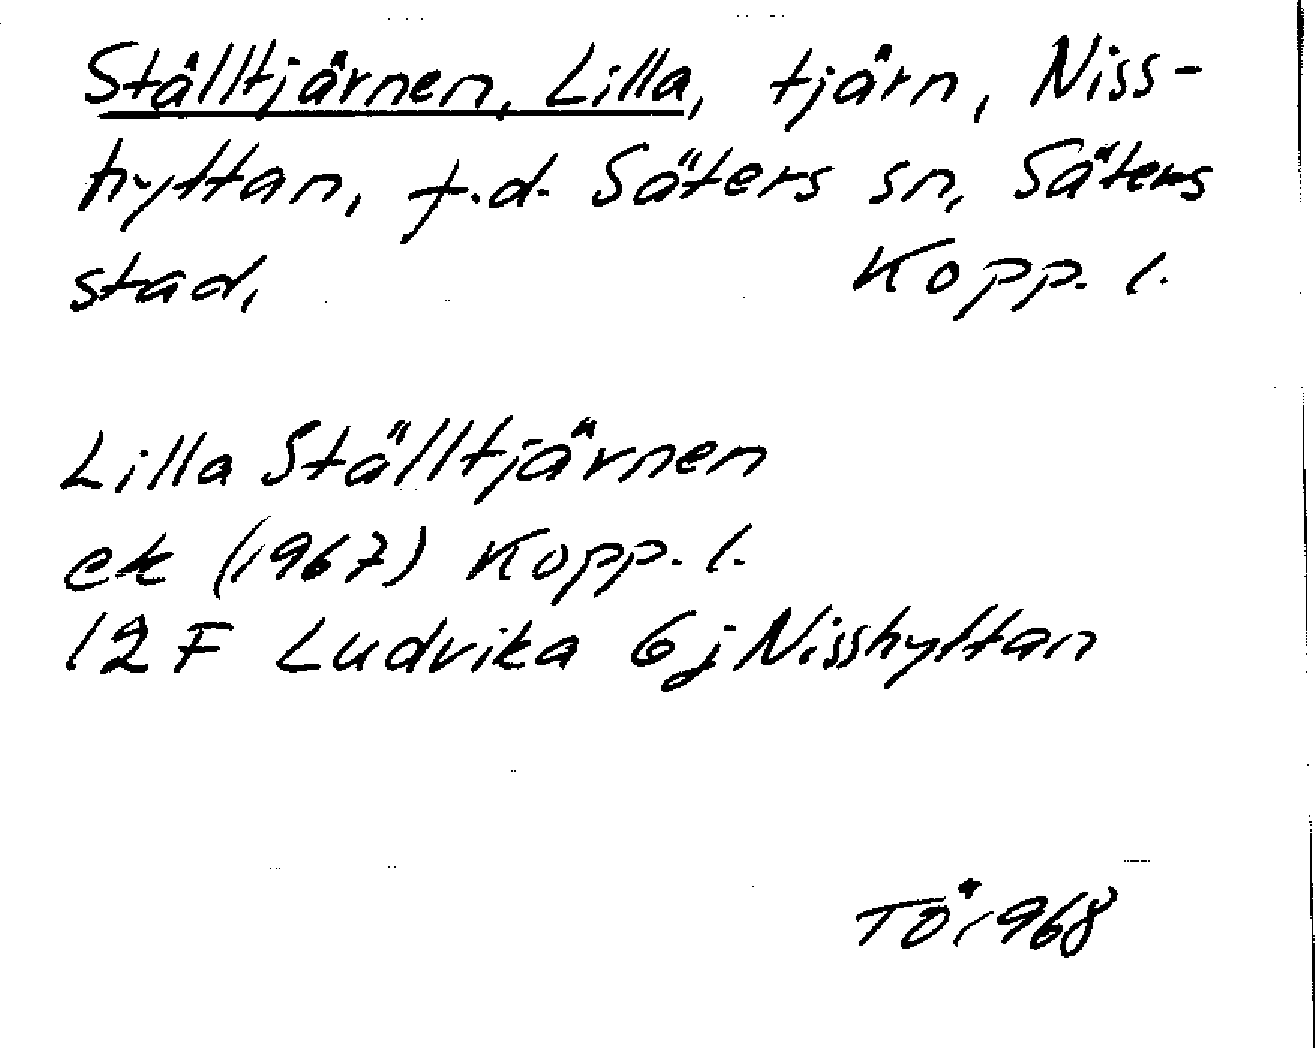 Ställtjärnen, Lilla, tjärn, Niss-
hyttan, f.d. Säters sn, Säters
stad, Kopp. l.
Lilla Ställtjärnen
ek (1967) Kopp. l.
12 F Ludvika 6j Nisshyttan
TÖ 1968